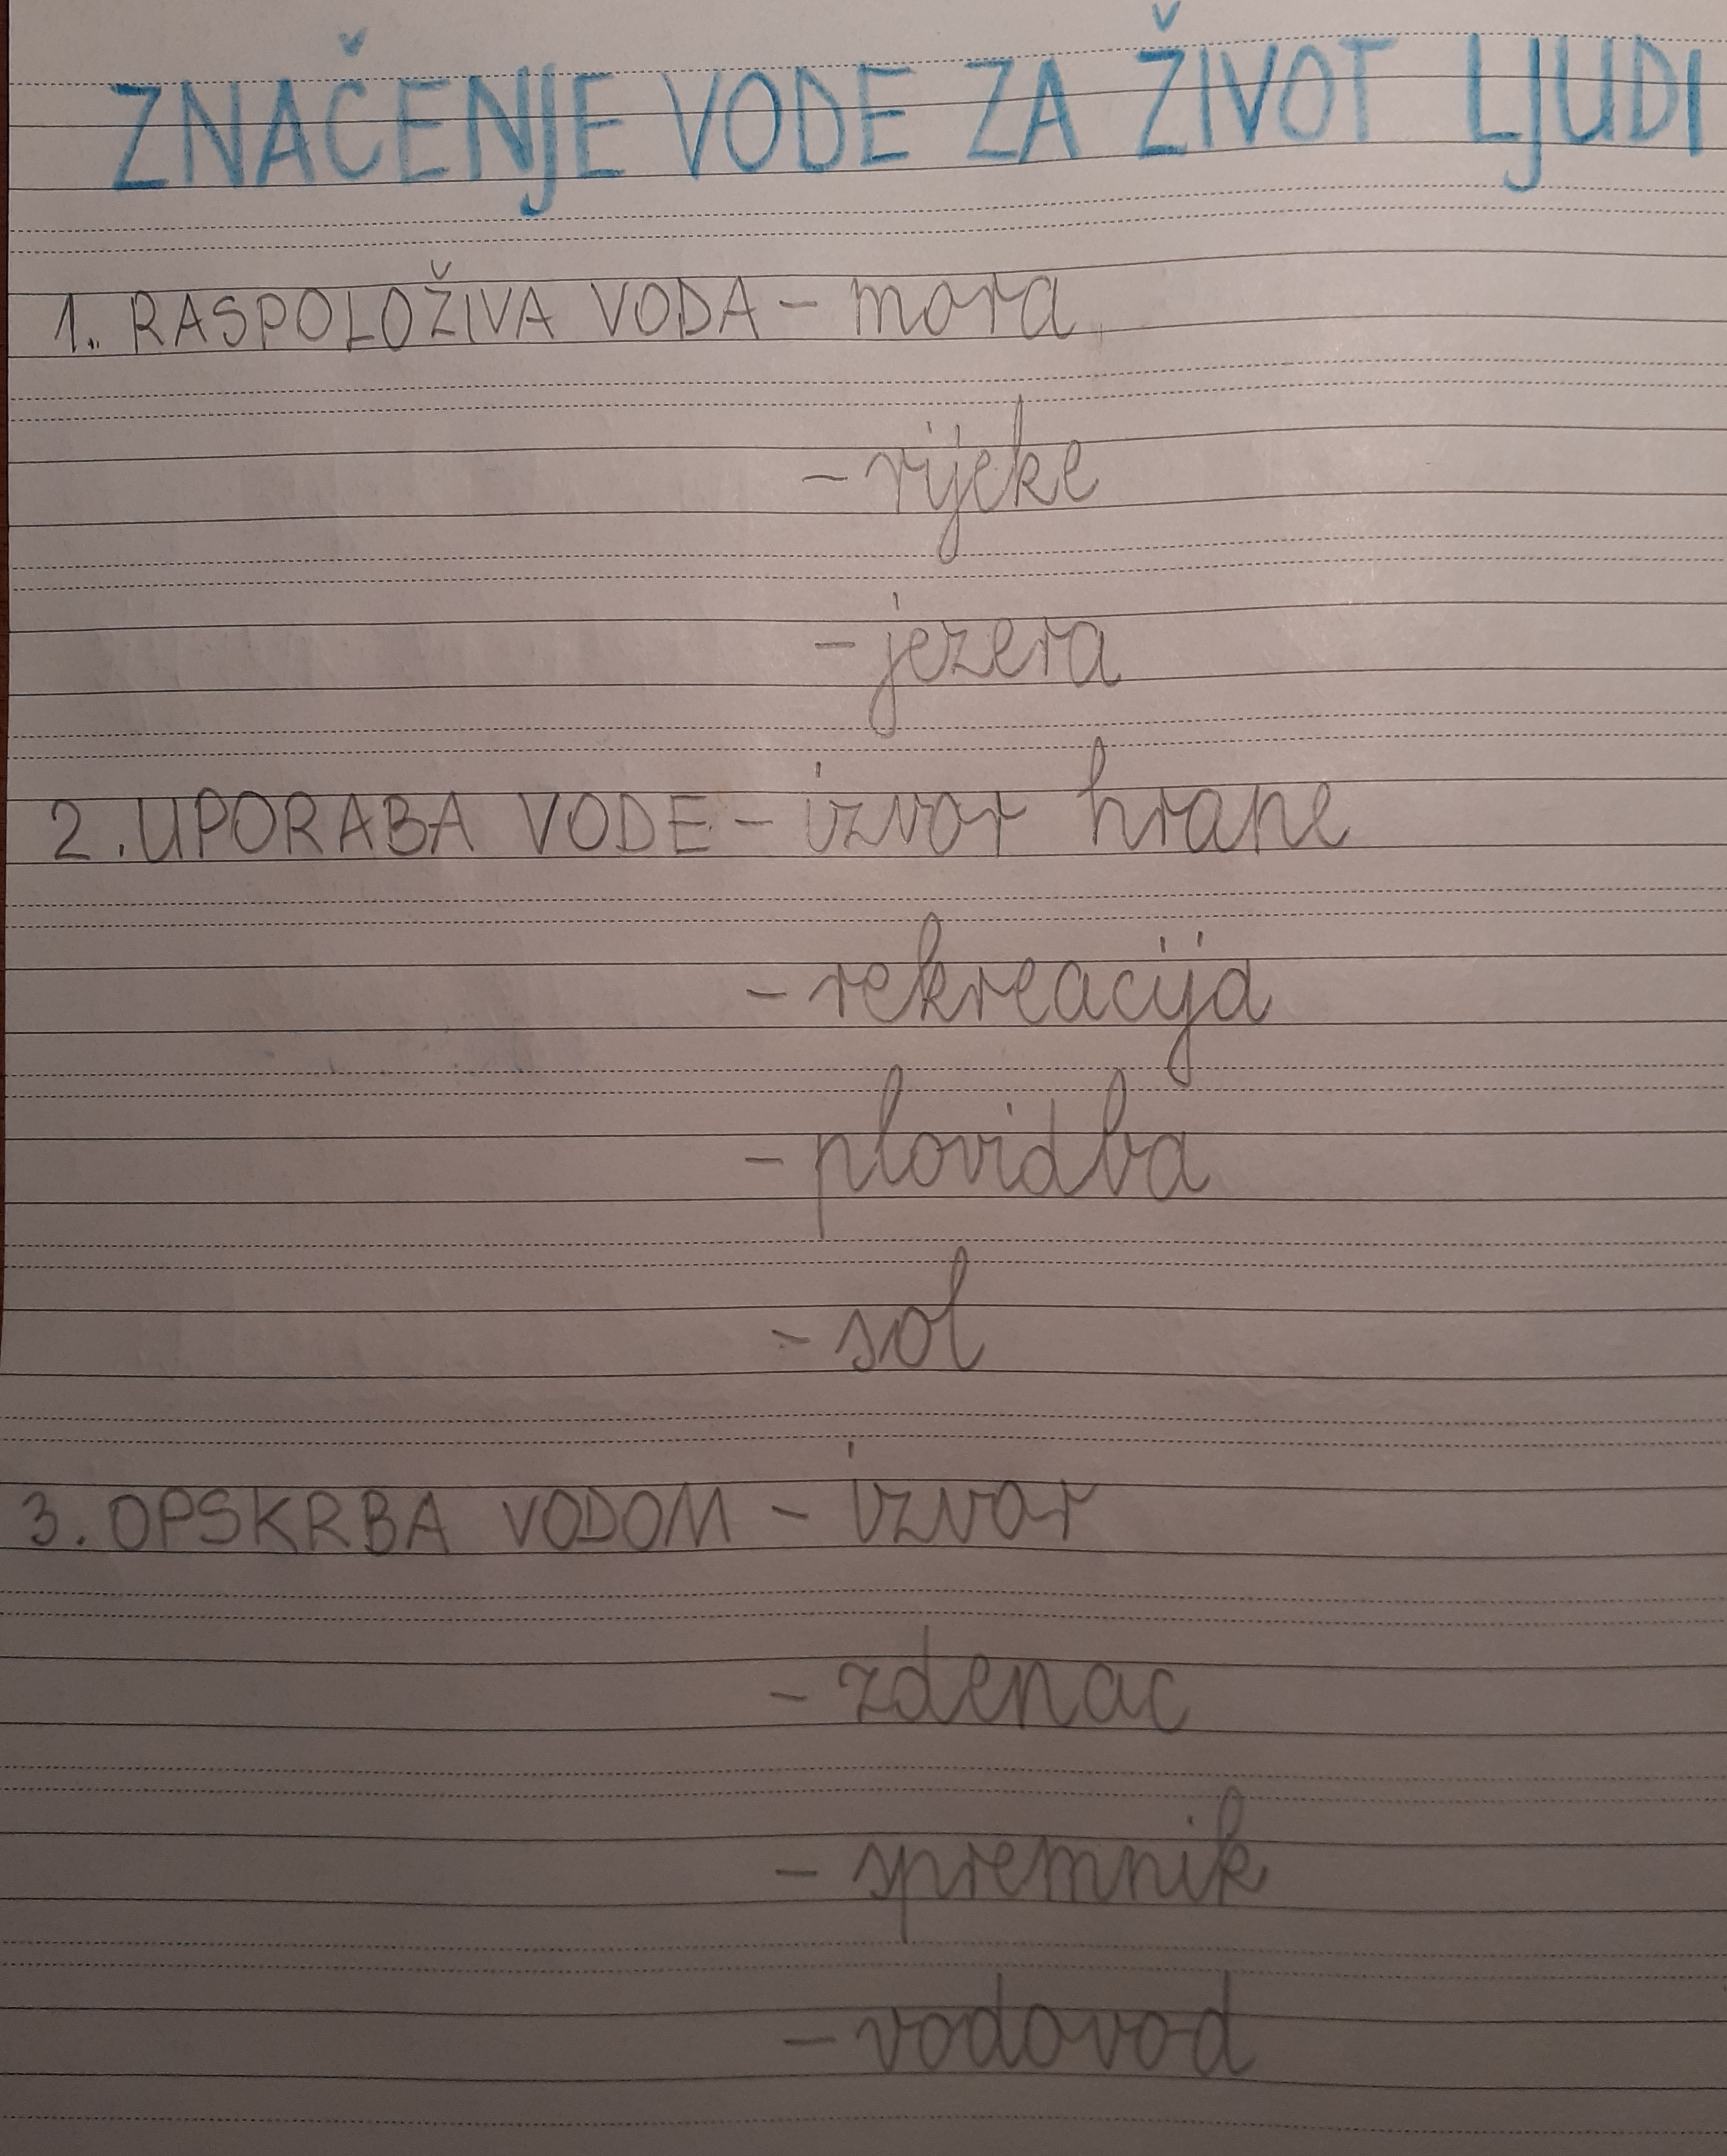 ZNAČENJE VODE ZA ŽIVOT LJUDI
1. RASPOLOŽIVA VODA - mora
- rijeke
- jezera
2. UPORABA VODE - izvor hrane
- rekreacija
- plovidba
- sol
3. OPSKRBA VODOM - izvor
- zdenac
- spremnik
- vodovod